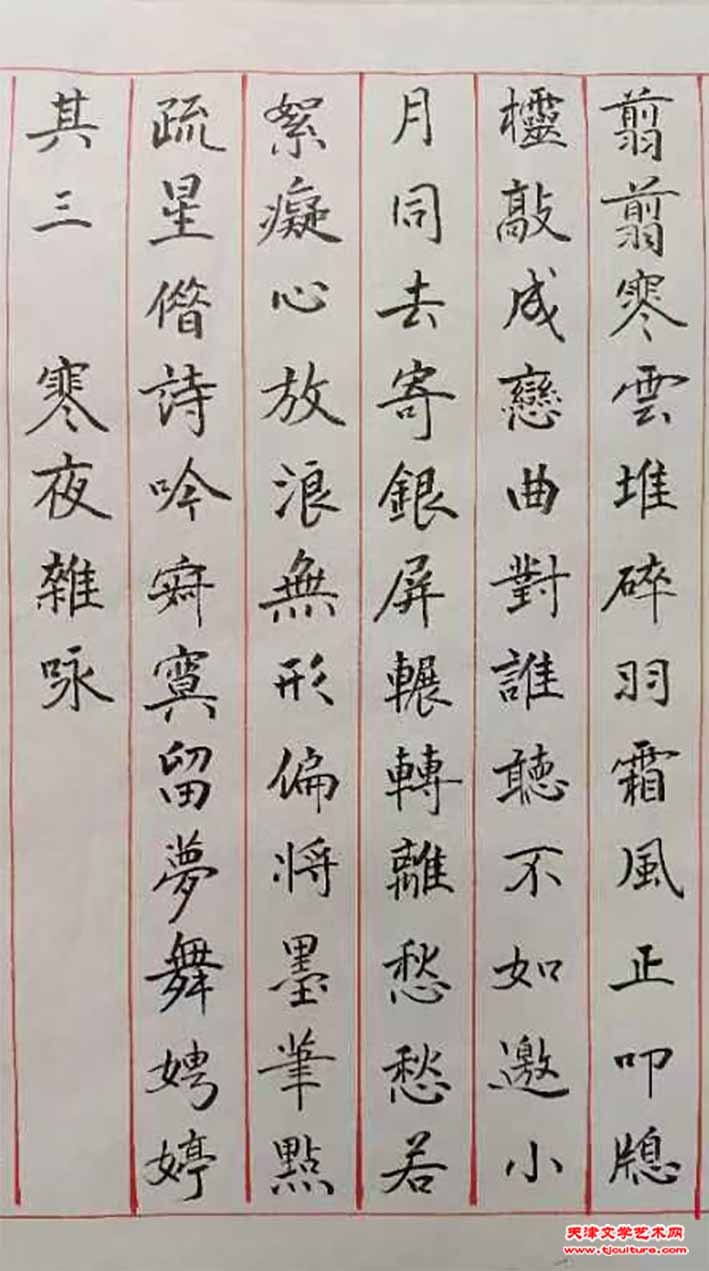 翦翦寒雲堆碎羽霜風正叩牕
櫺敲成戀曲對誰聽不如邀小
月同去寄銀屏輾轉離愁愁若
絮癡心放浪無形偏將墨筆點
疏星偺詩吟寂寞留夢舞娉婷
其三 寒夜雜咏
天津文学艺术网
www.tjculture.com